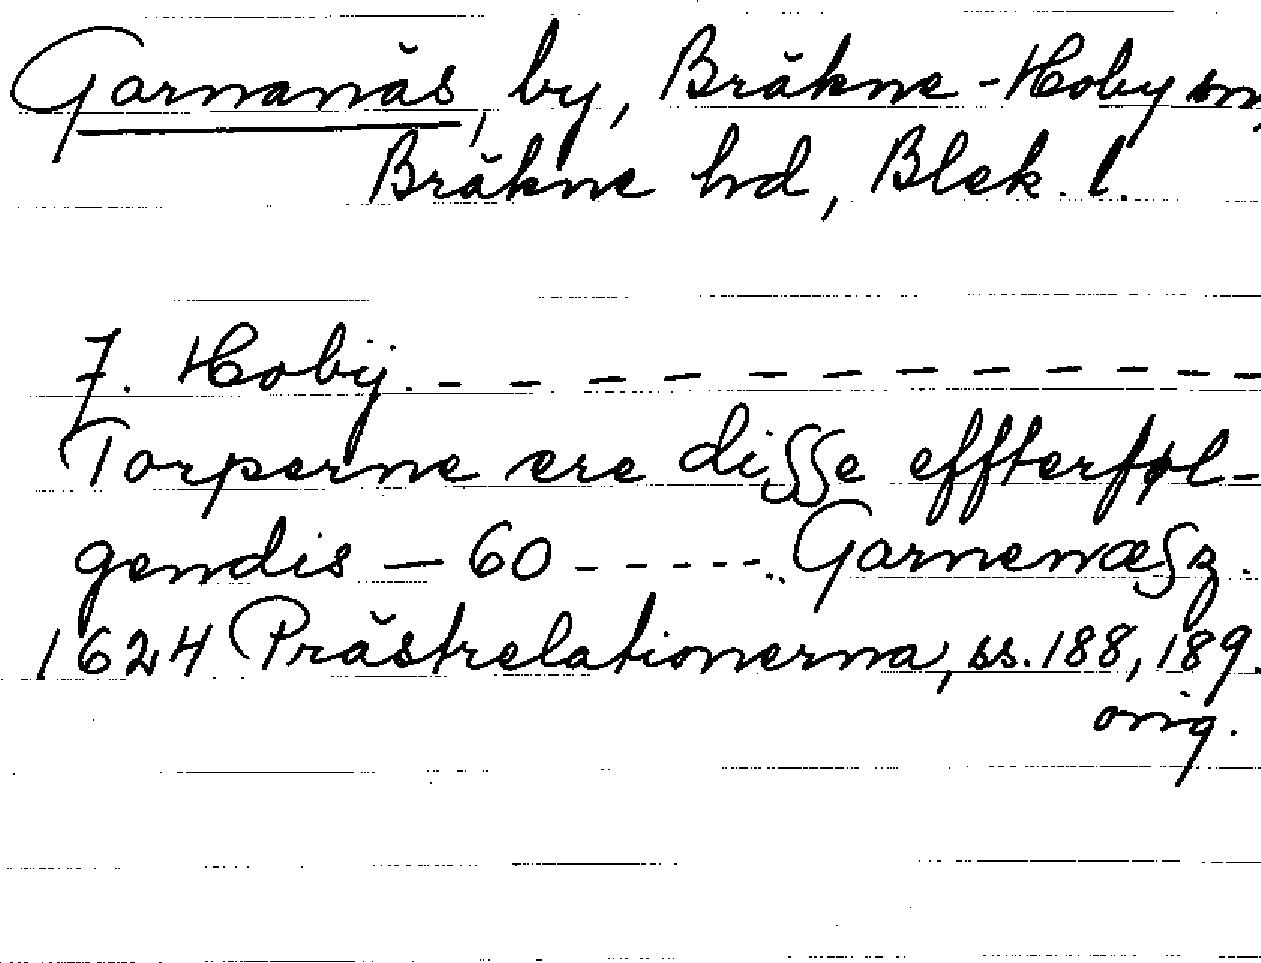 Garnanäs, by, Bräkne-Hoby sn,
Bräkne hd, Blek. l.
7. Hobÿ. _ _ _ _ _ _ _ _ _ _ _
Torperne ere disse effterføl-
gendis — 60 - - - - - .. Garnenæsz.
1624 Prästrelationerna, ss. 188, 189.
orig.